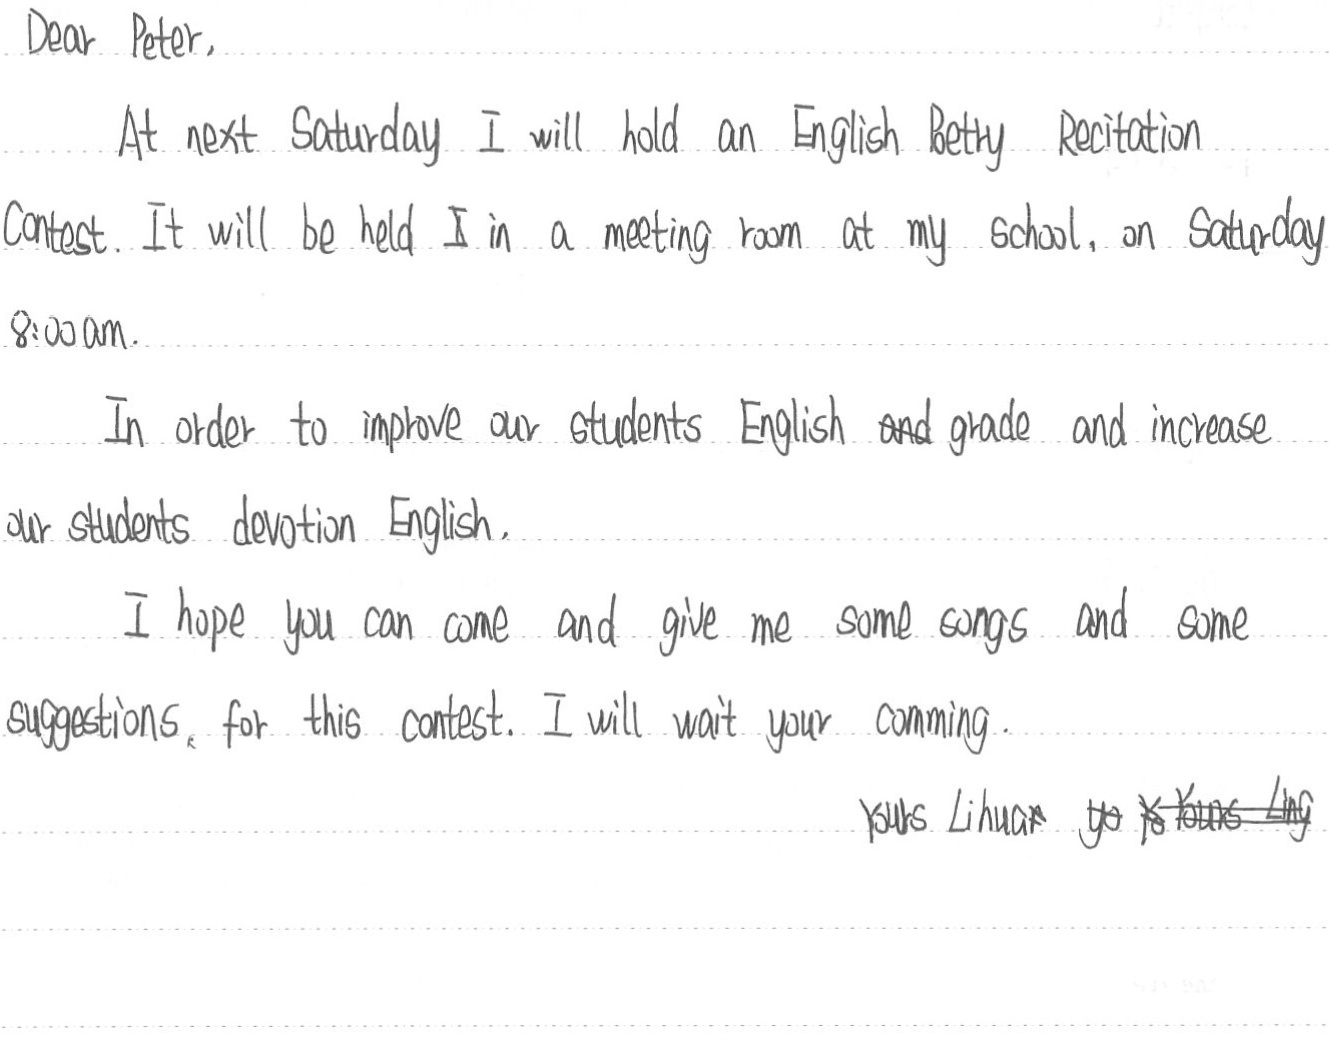 Dear Peter,
At next Saturday I will hold an English Betty Recitation
Contest. It will be held in a meeting room at my school, on Saturday
8:00am.
In order to improve our students English grade and increase
our students devotion English.
I hope you can come and give me some songs and some
suggestions, for this contest. I will wait your comming.
Yours Lihua